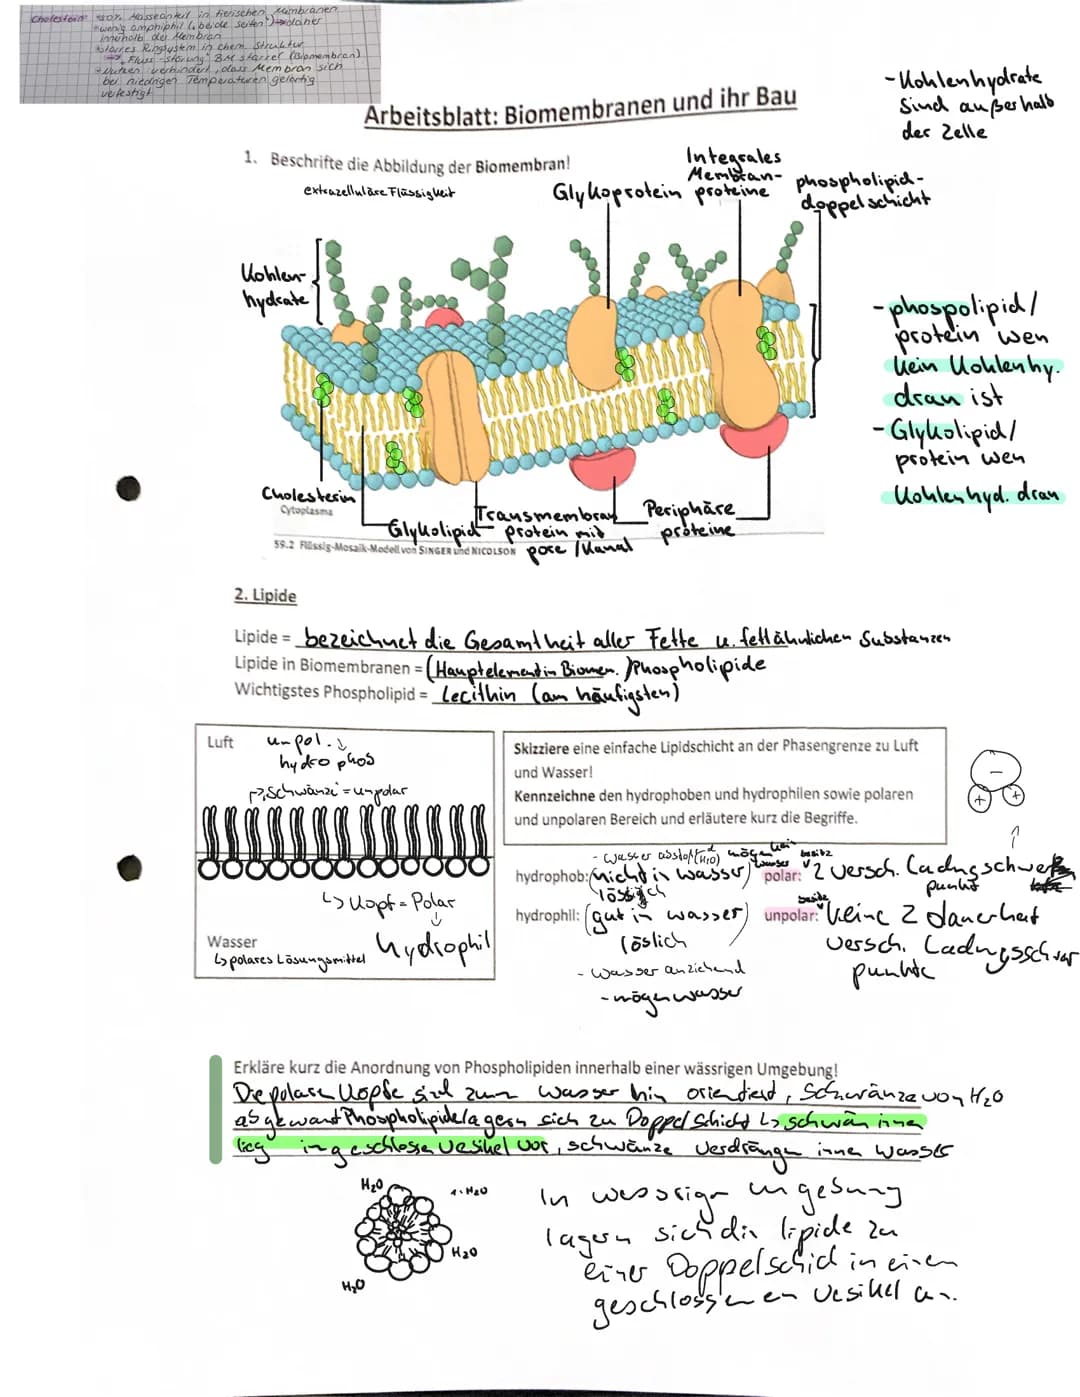 Cholesterin: 20% Masseanteil in tierischen Membranen
wenig amphiphil (beide Seiten) → daher
innerhalb der Membran
starres Ringsystem in chem. Struktur
"Fluss-Störung" BM starrer (Biomembran)
Nutzen: verhindert, dass Membran sich
bei niedrigen Temperaturen gelartig
verfestigt
Arbeitsblatt: Biomembranen und ihr Bau
- Kohlenhydrate
sind außerhalb
der Zelle
1. Beschrifte die Abbildung der Biomembran!
extrazelluläre Flüssigkeit
Glykoprotein
Integrales
Membran-
proteine
phospholipid-
doppelschicht
Kohlen-
hydrate
- phospolipid/
protein wen
kein Kohlenhy.
dran ist
- Glykolipid/
protein wen
Kohlenhyd. dran
Cholesterin
Cytoplasma
Glykolipid
Transmembran
protein mit
pore / Kanal
Periphäre
proteine
59.2 Flüssig-Mosaik-Modell von SINGER und NICOLSON
2. Lipide
Lipide = bezeichnet die Gesamtheit aller Fette u. fettähnlichen Substanzen
Lipide in Biomembranen = (Hauptelement in Biomem.) Phospholipide
Wichtigstes Phospholipid = Lecithin (am häufigsten)
Luft
unpol. ↓
hydrophos
↱ Schwänze = unpolar
↳ Kopf = Polar
↓
hydrophil
Wasser
↳ polares Lösungsmittel
Skizziere eine einfache Lipidschicht an der Phasengrenze zu Luft
und Wasser!
Kennzeichne den hydrophoben und hydrophilen sowie polaren
und unpolaren Bereich und erläutere kurz die Begriffe.
−
+ +
- wasser abstoßend (H2O) mögen kein wasser
hydrophob: (nicht in wasser)
löslich
hydrophil: (gut in wasser)
löslich
- wasser anziehend
- mögen wasser
polar: besitz 2 versch. Ladungsschwer
punkt
unpolar: besitz keine 2 dauerhaft
versch. Ladungsschwer
punkte
Erkläre kurz die Anordnung von Phospholipiden innerhalb einer wässrigen Umgebung!
Die polaren Köpfe sind zum wasser hin orientiert, Schwänze von H2O
abgewant Phospholipide lagern sich zu Doppelschicht ↳ schwän innen
lieg in geschlossen Vesikel vor, schwänze verdrängen innen wasser
H2O
H2O
H2O
H2O
In wässriger umgebung
lagern sich die lipide zu
einer Doppelschid in einen
geschlossenen vesikel an.